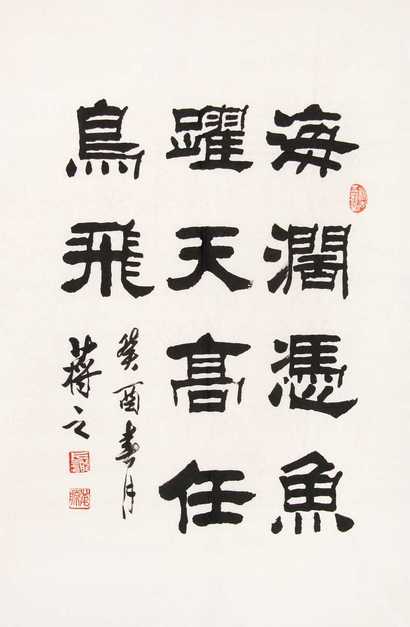 海濶憑魚
躍天高任
鳥飛
癸酉春月